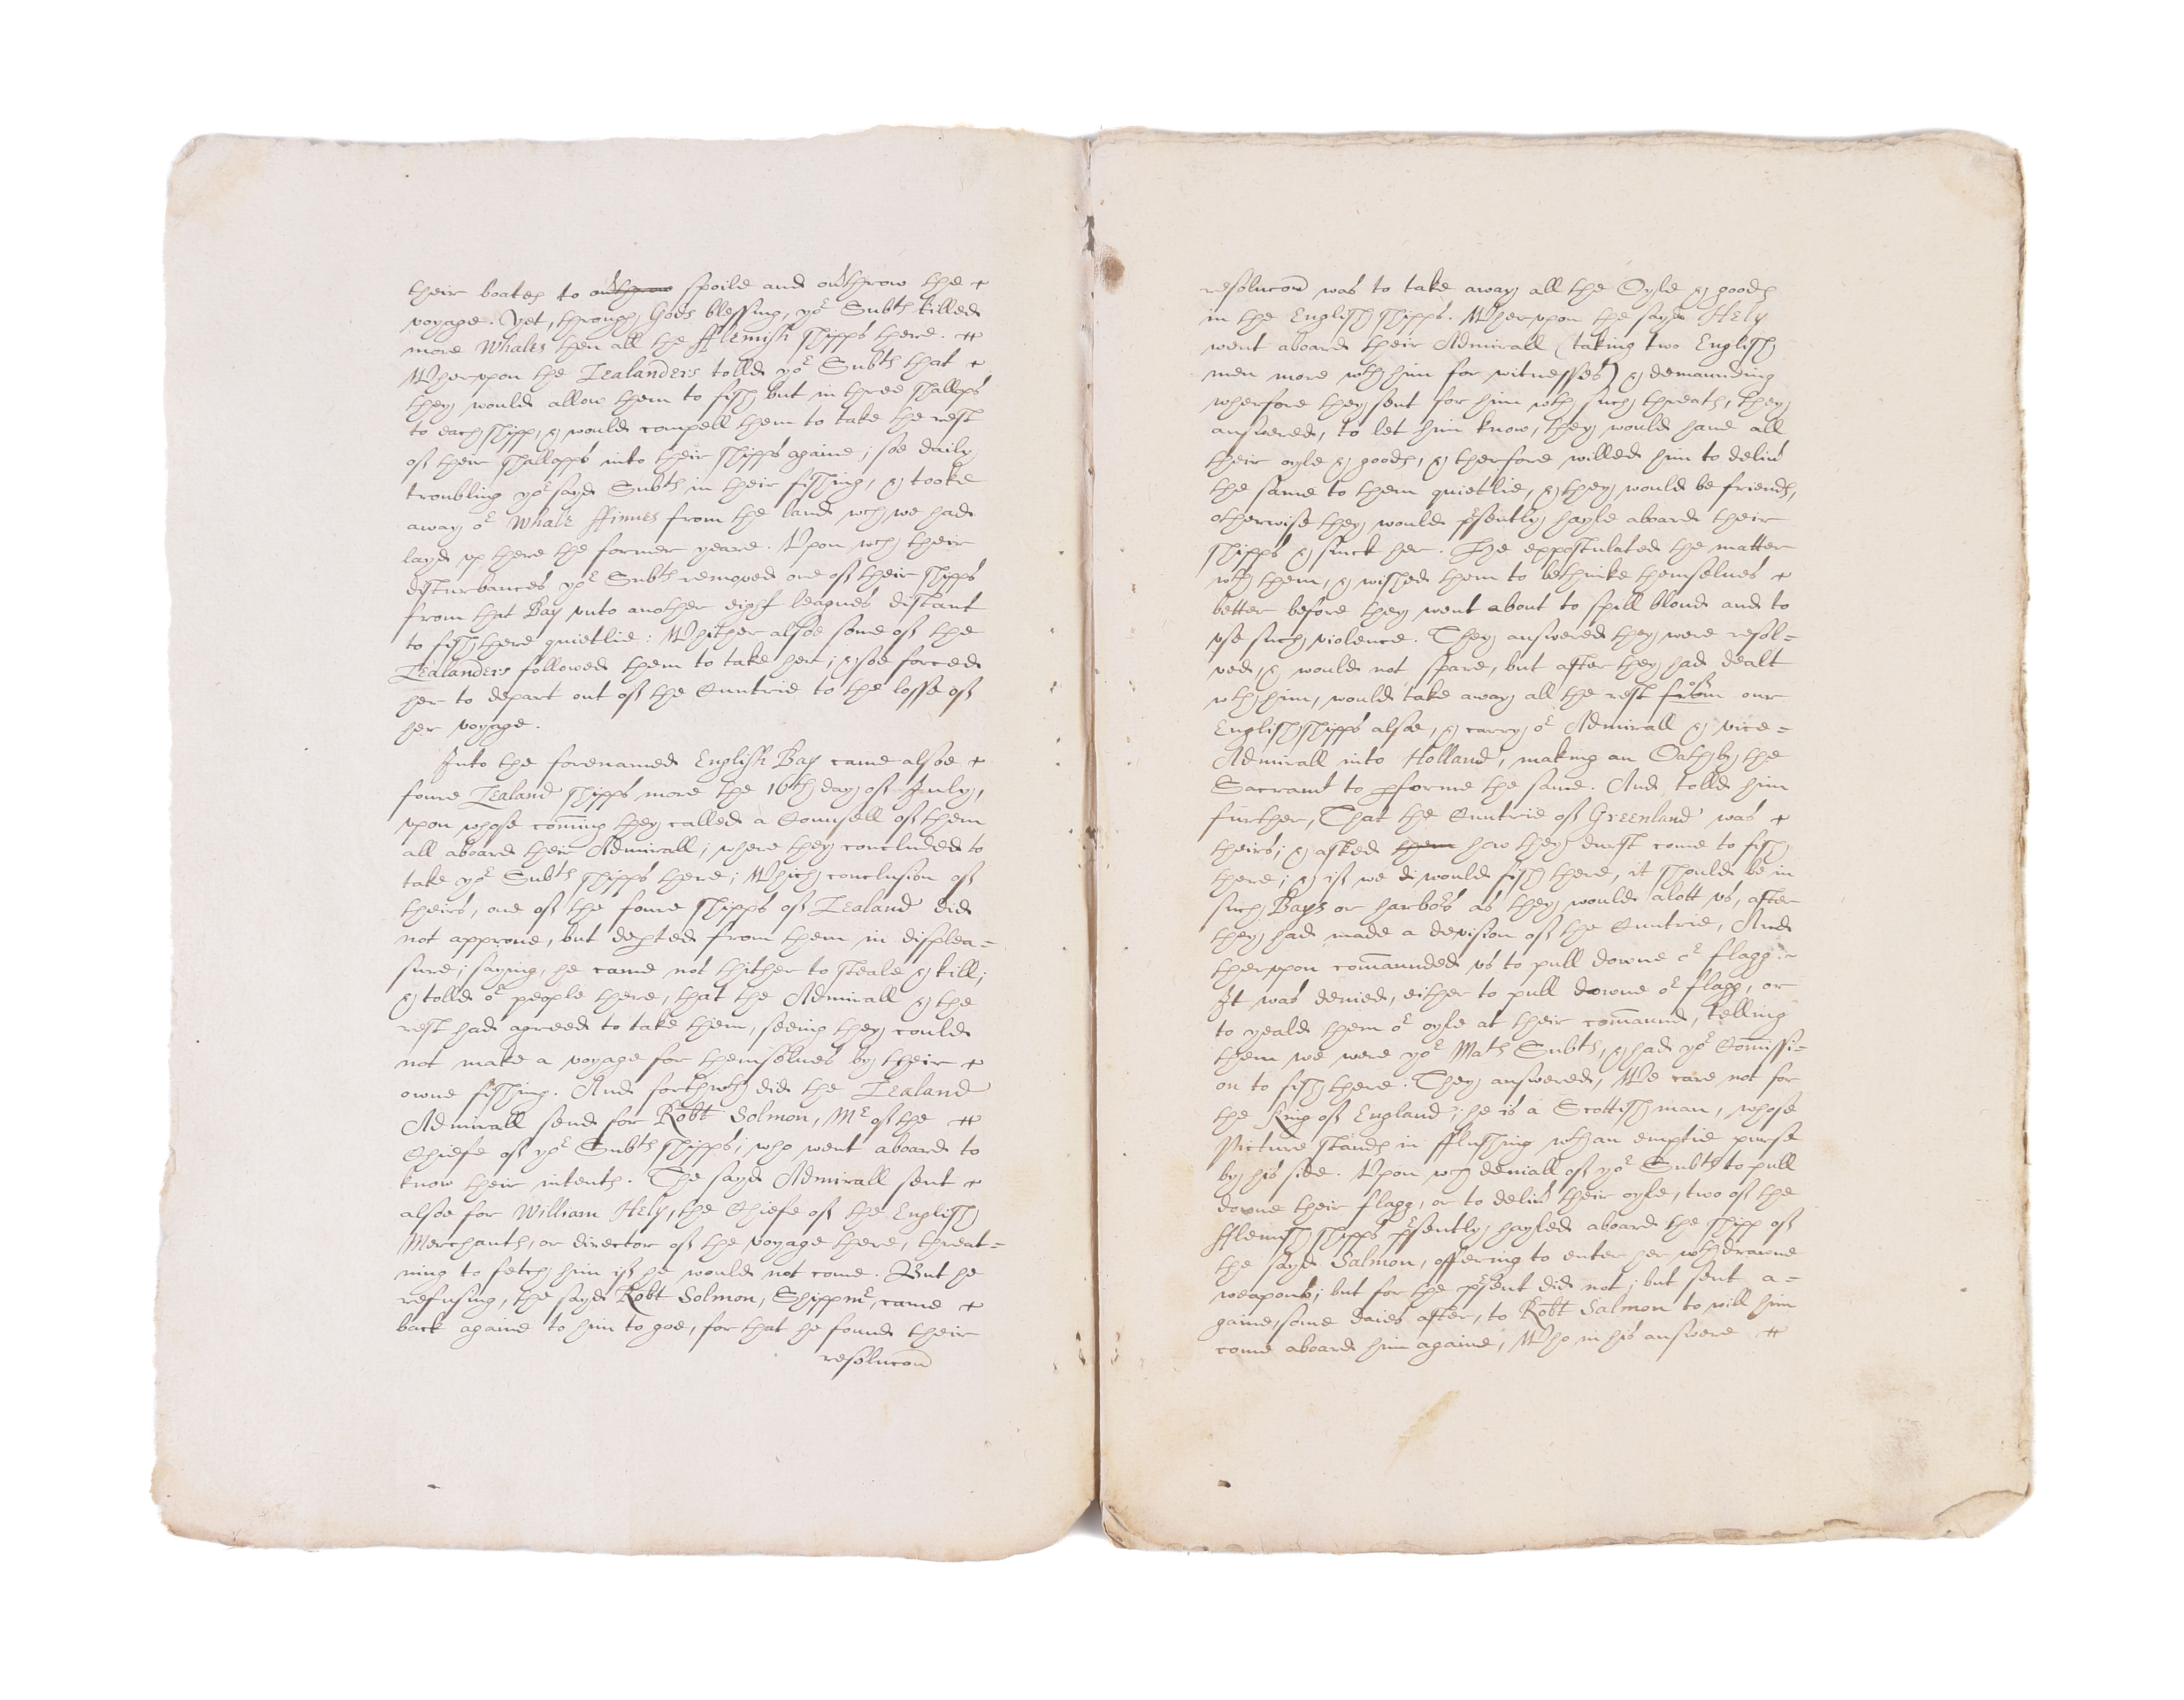 their boates to ou'throw spoile and ou'throw the
voyage. Yet, through Gods blessing, yor Subts killed
more Whales then all the fflemish shipps there.
Wherupon the Zealanders tolld yor Subts that
they would allow them to fish but in three shallops
to each shipp, & would compell them to take the rest
of their shallopps into their shipps againe; soe daily
troubling yor sayd Subts in their fishing, & tooke
away or Whale ffinnes from the land wch we had
layd up there the former yeare. Upon wch their
disturbances yor Subts removed one of their shipps
from that Bay unto another eight leagues distant
to fish there quietlie: Whither alsoe some of the
Zealanders followed them to take her; & soe forced
her to depart out of the Cuntrie to the losse of
her voyage.
Into the forenamed English Bay came alsoe
foure Zealand shipps more the 16th day of July,
upon whose coming they called a Counsell of them
all aboard their Admirall; where they concluded to
take yor Subts shipps there; Which conclusion of
theirs, one of the foure shipps of Zealand did
not approue, but depted from them in displea=
sure; saying, he came not thither to steale & kill;
& tolld or people there, that the Admirall & the
rest had agreed to take them, seeing they could
not make a voyage for themselves by their
owne fishing. And forthwth did the Zealand
Admirall send for Robt Solmon, Mr of the
Chiefe of yor Subts shipps; who went aboard to
know their intents. The sayd Admirall sent
alsoe for William Hely, the Chiefe of the English
Merchants, or director of the voyage there, threat=
ning to fetch him if he would not come. But he
refusing, the sayd Robt Solmon, Shippmr, came
back againe to him to goe, for that he found their
resolucon
resolucon was to take away all the Oyle & goods
in the English shipps. Wherupon the sayd Hely
went aboard their Admirall (taking two English
men more wth him for witnesses) & demaunding
wherfore they sent for him wth such threats, they
answered, to let him know, they would haue all
their oyle & goods, & therfore willed him to deliu'
the same to them quietlie, & they would be friends,
otherwise they would prsently hayle aboard their
shipps & sinck her. He expostulated the matter
wth them, & wished them to bethinke themselues
better before they went about to spill bloud and to
use such violence. They answered they were resol=
ved, & would not spare, but after they had dealt
wth him, would take away all the rest from of our
English shipps alsoe, & carry or Admirall & vice=
Admirall into Holland, making an Oath by the
Sacramt to pforme the same. And tolld him
further, That the Cuntrie of Greenland was
theirs; & asked them how they durst come to fish
there; & if we di would fish there, it should be in
such Bays or harbors as they would alott us, after
they had made a devision of the Cuntrie, And
therupon comaunded us to pull downe or flagg.
It was denied, either to pull downe or flagg, or
to yeald them or oyle at their comaund, telling
them we were yor Mats Subts, & had yor Comissi=
on to fish there. They answered, We care not for
the King of England; he is a Scottish man, whose
Picture stands in fflushing wth an emptie purse
by his side. Upon wch deniall of yor Subts to pull
downe their flagg, or to deliu' their oyle, two of the
fflemish shipps prsently hayled aboard the shipp of
the sayd Salmon, offering to enter her wth drawne
weapons; but for the prsent did not; but sent a=
gaine, some daies after, to Robt Salmon to will him
come aboard him againe, Who in his answere